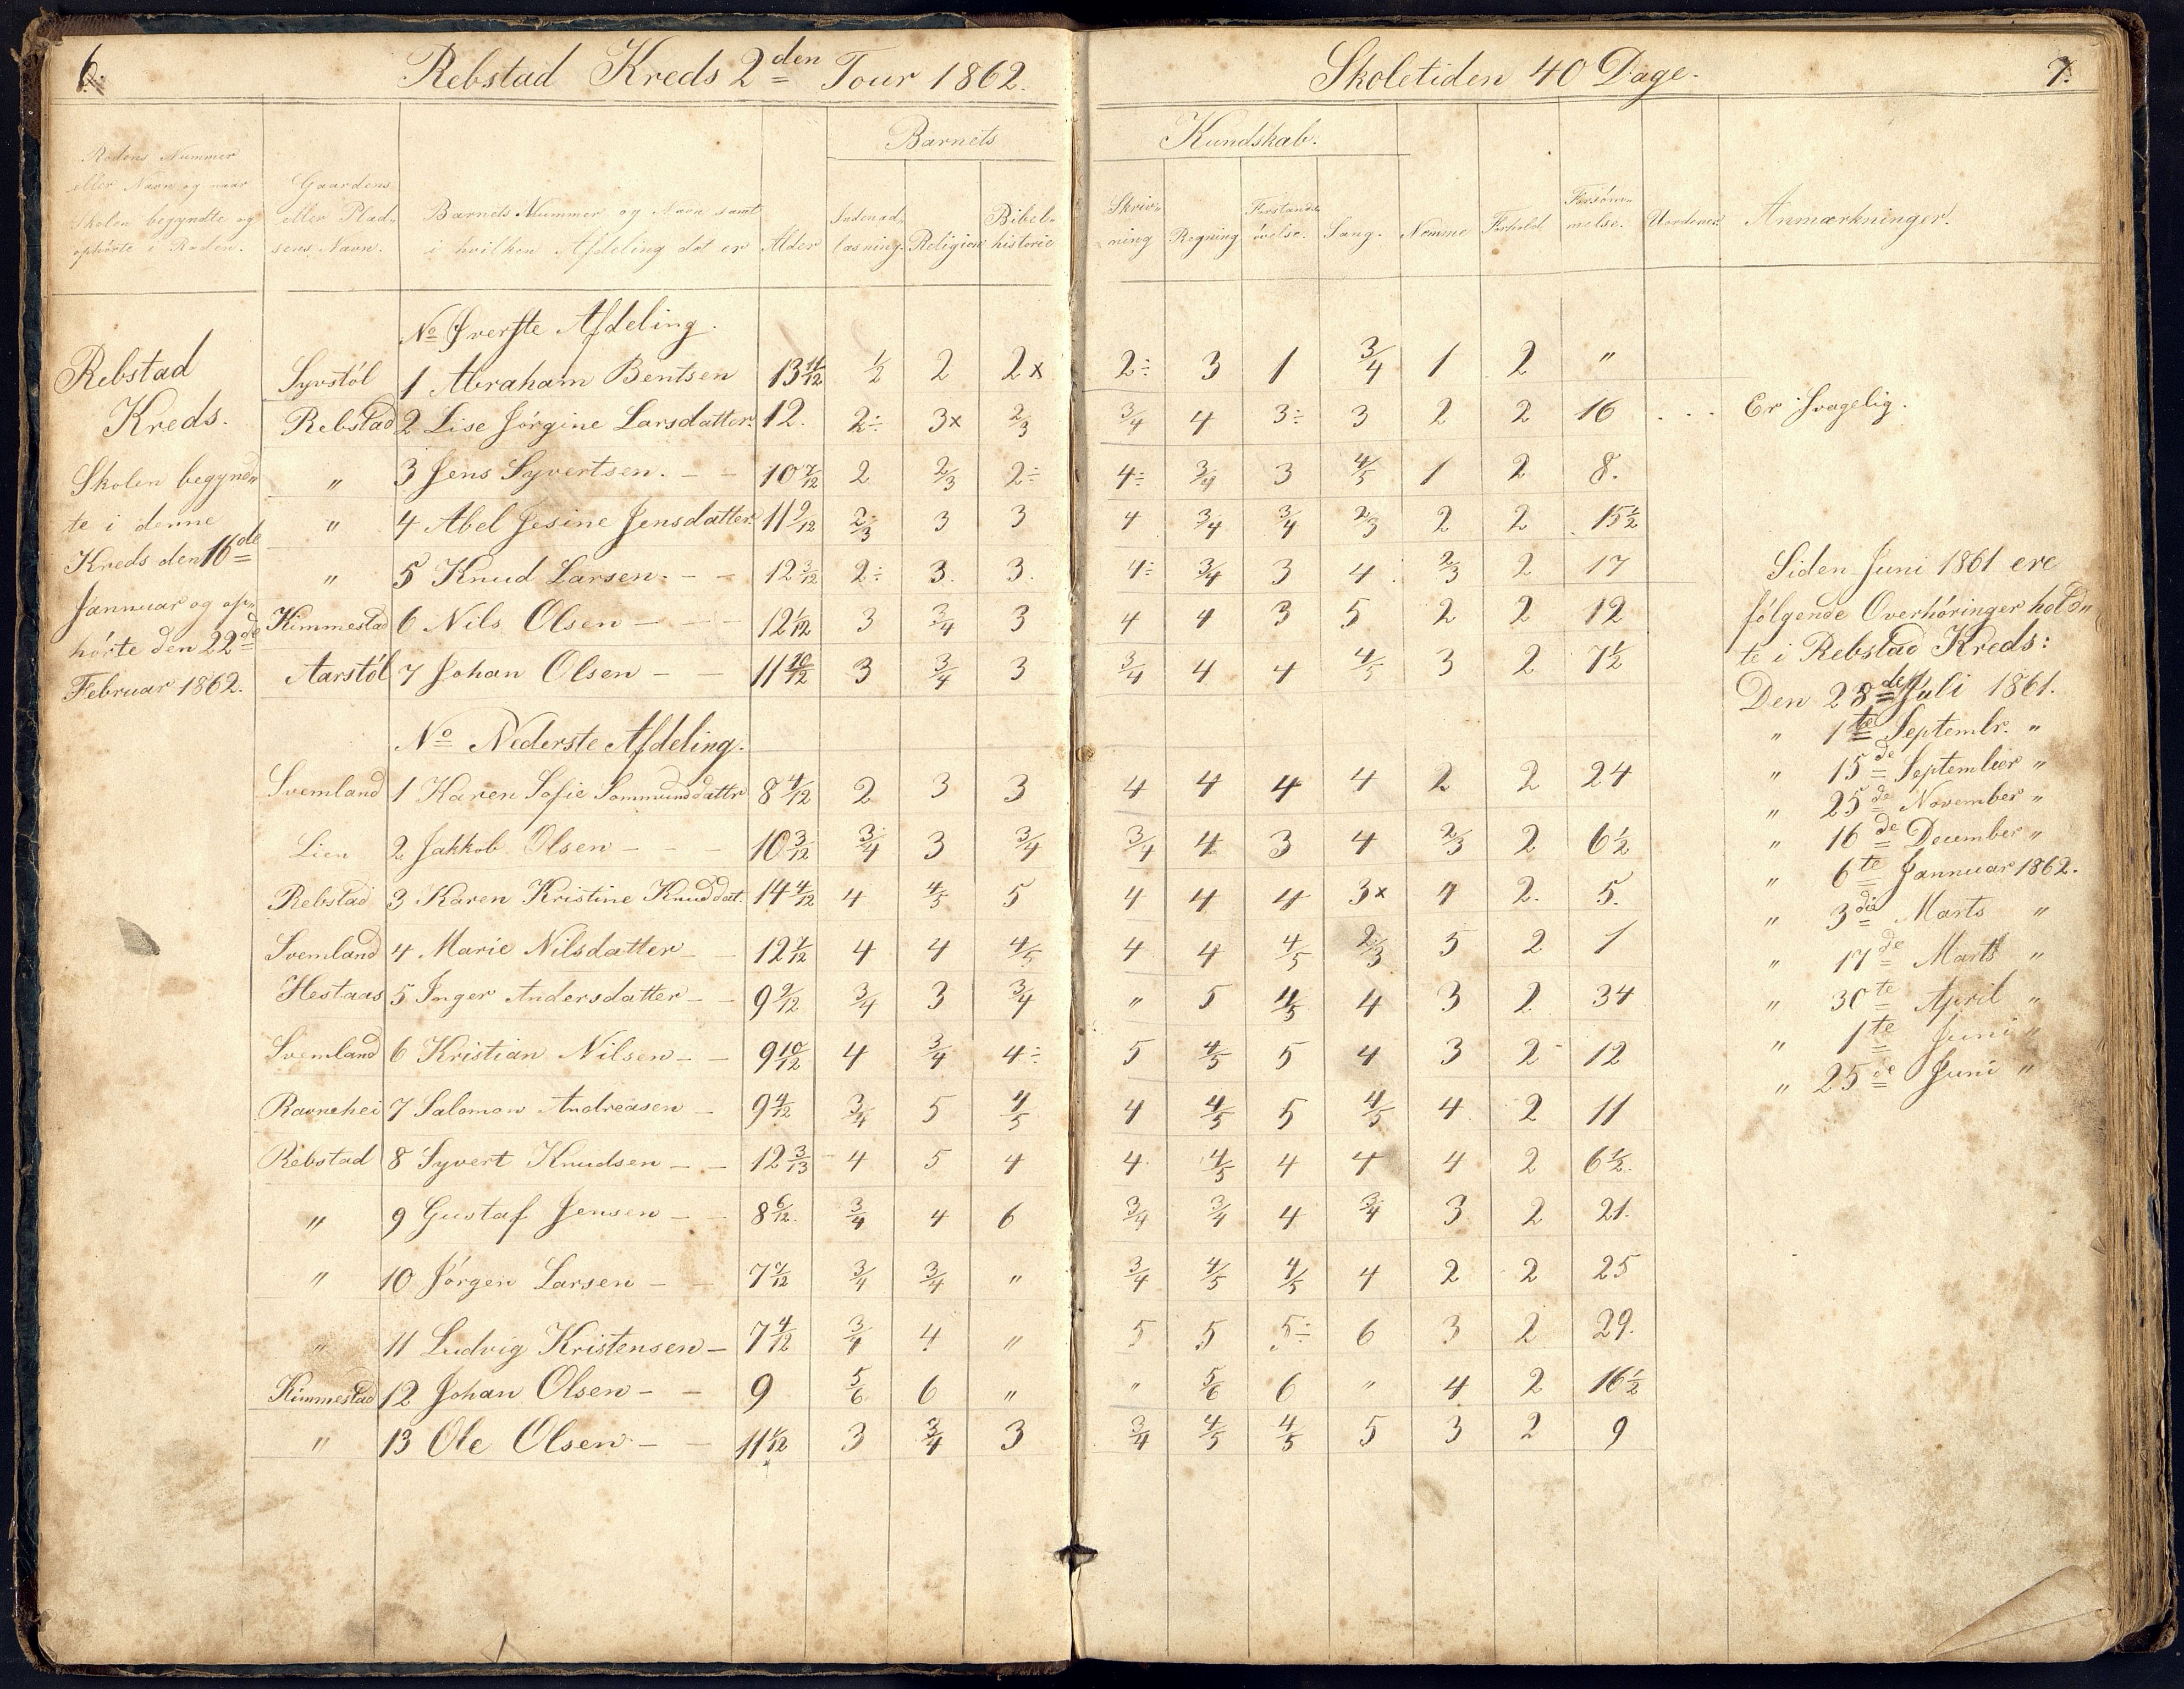 6.
Rebstad Kreds 2den Tour 1862.
Skoletiden 40 Dage.
7.
Barnets
Kundskab.
Rodens Nummer eller Navn og naar Skolen begyndte og ophörte i Roden.
Gaardens eller Plad„ sens Navn.
Barnets Nummer og Navn samt i hvilken Afdeling det er
Alder
Indenad„ læsning
Religion
Bibel„ historie
Skriv„ ning
Regning
Forstands„ övelse.
Sang.
Nemme
Forhold
Forsöm„ melse.
Uordener
Anmærkninger.
Rebstad
Kreds.
Skolen begynd„
te i denne
Kreds den 16de
Jannuar og op„
hörte den 22de
Februar 1862.
No Överste Afdeling.
Syvstöl 1 Abraham Bentsen 13 11/12 1/2 2 2x 2÷ 3 1 3/4 1 2 „
Rebstad 2 Lise Jörgine Larsdatter 12. 2÷ 3x 2/3 3/4 4 3÷ 3 2 2 16 Er Svagelig.
„ 3 Jens Syvertsen. - - 10 7/12 2 2/3 2÷ 4÷ 3/4 3 4/5 1 2 8.
„ 4 Abel Jesine Jensdatter 11 9/12 2/3 3 3 4 3/4 3/4 2/3 2 2 15 1/2
„ 5 Knud Larsen. - - 12 3/12 2÷ 3. 3. 4÷ 3/4 3 4 2/3 2 17
Kimmestad 6 Nils Olsen - - - 12 1/12 3 3/4 3 4 4 3 5 2 2 12
Aarstöl 7 Johan Olsen - - 11 10/12 3 3/4 3 3/4 4 4 4/5 3 2 7 1/2
No Nederste Afdeling.
Svemland 1 Karen Sofie Sommunddattr 8 4/12 2 3 3 4 4 4 4 2 2 24
Lien 2 Jakkob Olsen - - - 10 3/12 3/4 3 3/4 3/4 4 3 4 2/3 2 6 1/2
Rebstad 3 Karen Kristine Knuddat. 14 4/12 4 4/5 5 4 4 4 3x 4 2. 5.
Svemland 4 Marie Nilsdatter - - 12 7/12 4 4 4/5 4 4 4/5 2/3 3 2 1
Hestaas 5 Inger Andersdatter - - 9 9/12 3/4 3 3/4 „ 5 4/5 4 3 2 34
Svemland 6 Kristian Nilsen - - 9 10/12 4 3/4 4÷ 5 4/5 5 4 3 2 12
Ravnehei 7 Salomon Andreasen - 9 4/12 3/4 5 4/5 4 4/5 5 4/5 4 2 11
Rebstad 8 Syvert Knudsen - - 12 3/13 4 5 4 4 4/5 4 4 4 2 6 1/2.
„ 9 Gustaf Jensen - - 8 6/12. 3/4 4 6 3/4 3/4 4 3/4 3 2 21.
„ 10 Jörgen Larsen - - 7 9/12 3/4 3/4 „ 3/4 4/5 4/5 4 2 2 25
„ 11 Ludvig Kristensen - 7 4/12 3/4 4 „ 5 5 5÷ 6 3 2 29.
Kimmestad 12 Johan Olsen - - 9 5/6 6 „ „ 5/6 6 „ 4 2 16 1/2
„ 13 Ole Olsen - - 11 1/12 3 3/4 3 3/4 4/5 4/5 5 3 2 9
Siden Juni 1861 ere
fölgende Overhöringer hold„
te i Rebstad Kreds:
Den 28de Juli 1861.
„ 1te Septembr. „
„ 15de September „
„ 25de November „
„ 16de December „
„ 6te Jannuar 1862.
„ 3die Marts „
„ 17de Marts „
„ 30te April „
„ 1te Juni „
„ 25de Juni „